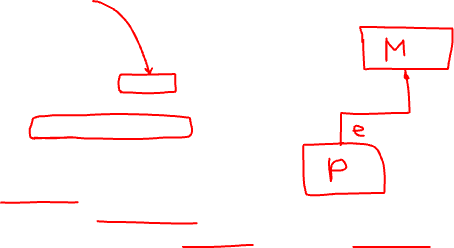 M
e
P